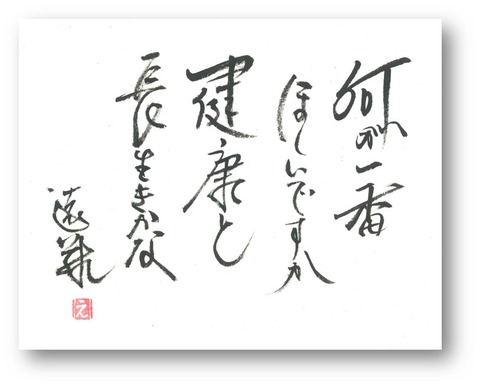 何が一番
ほしいですか
健康と
長生きかな
遠華
え